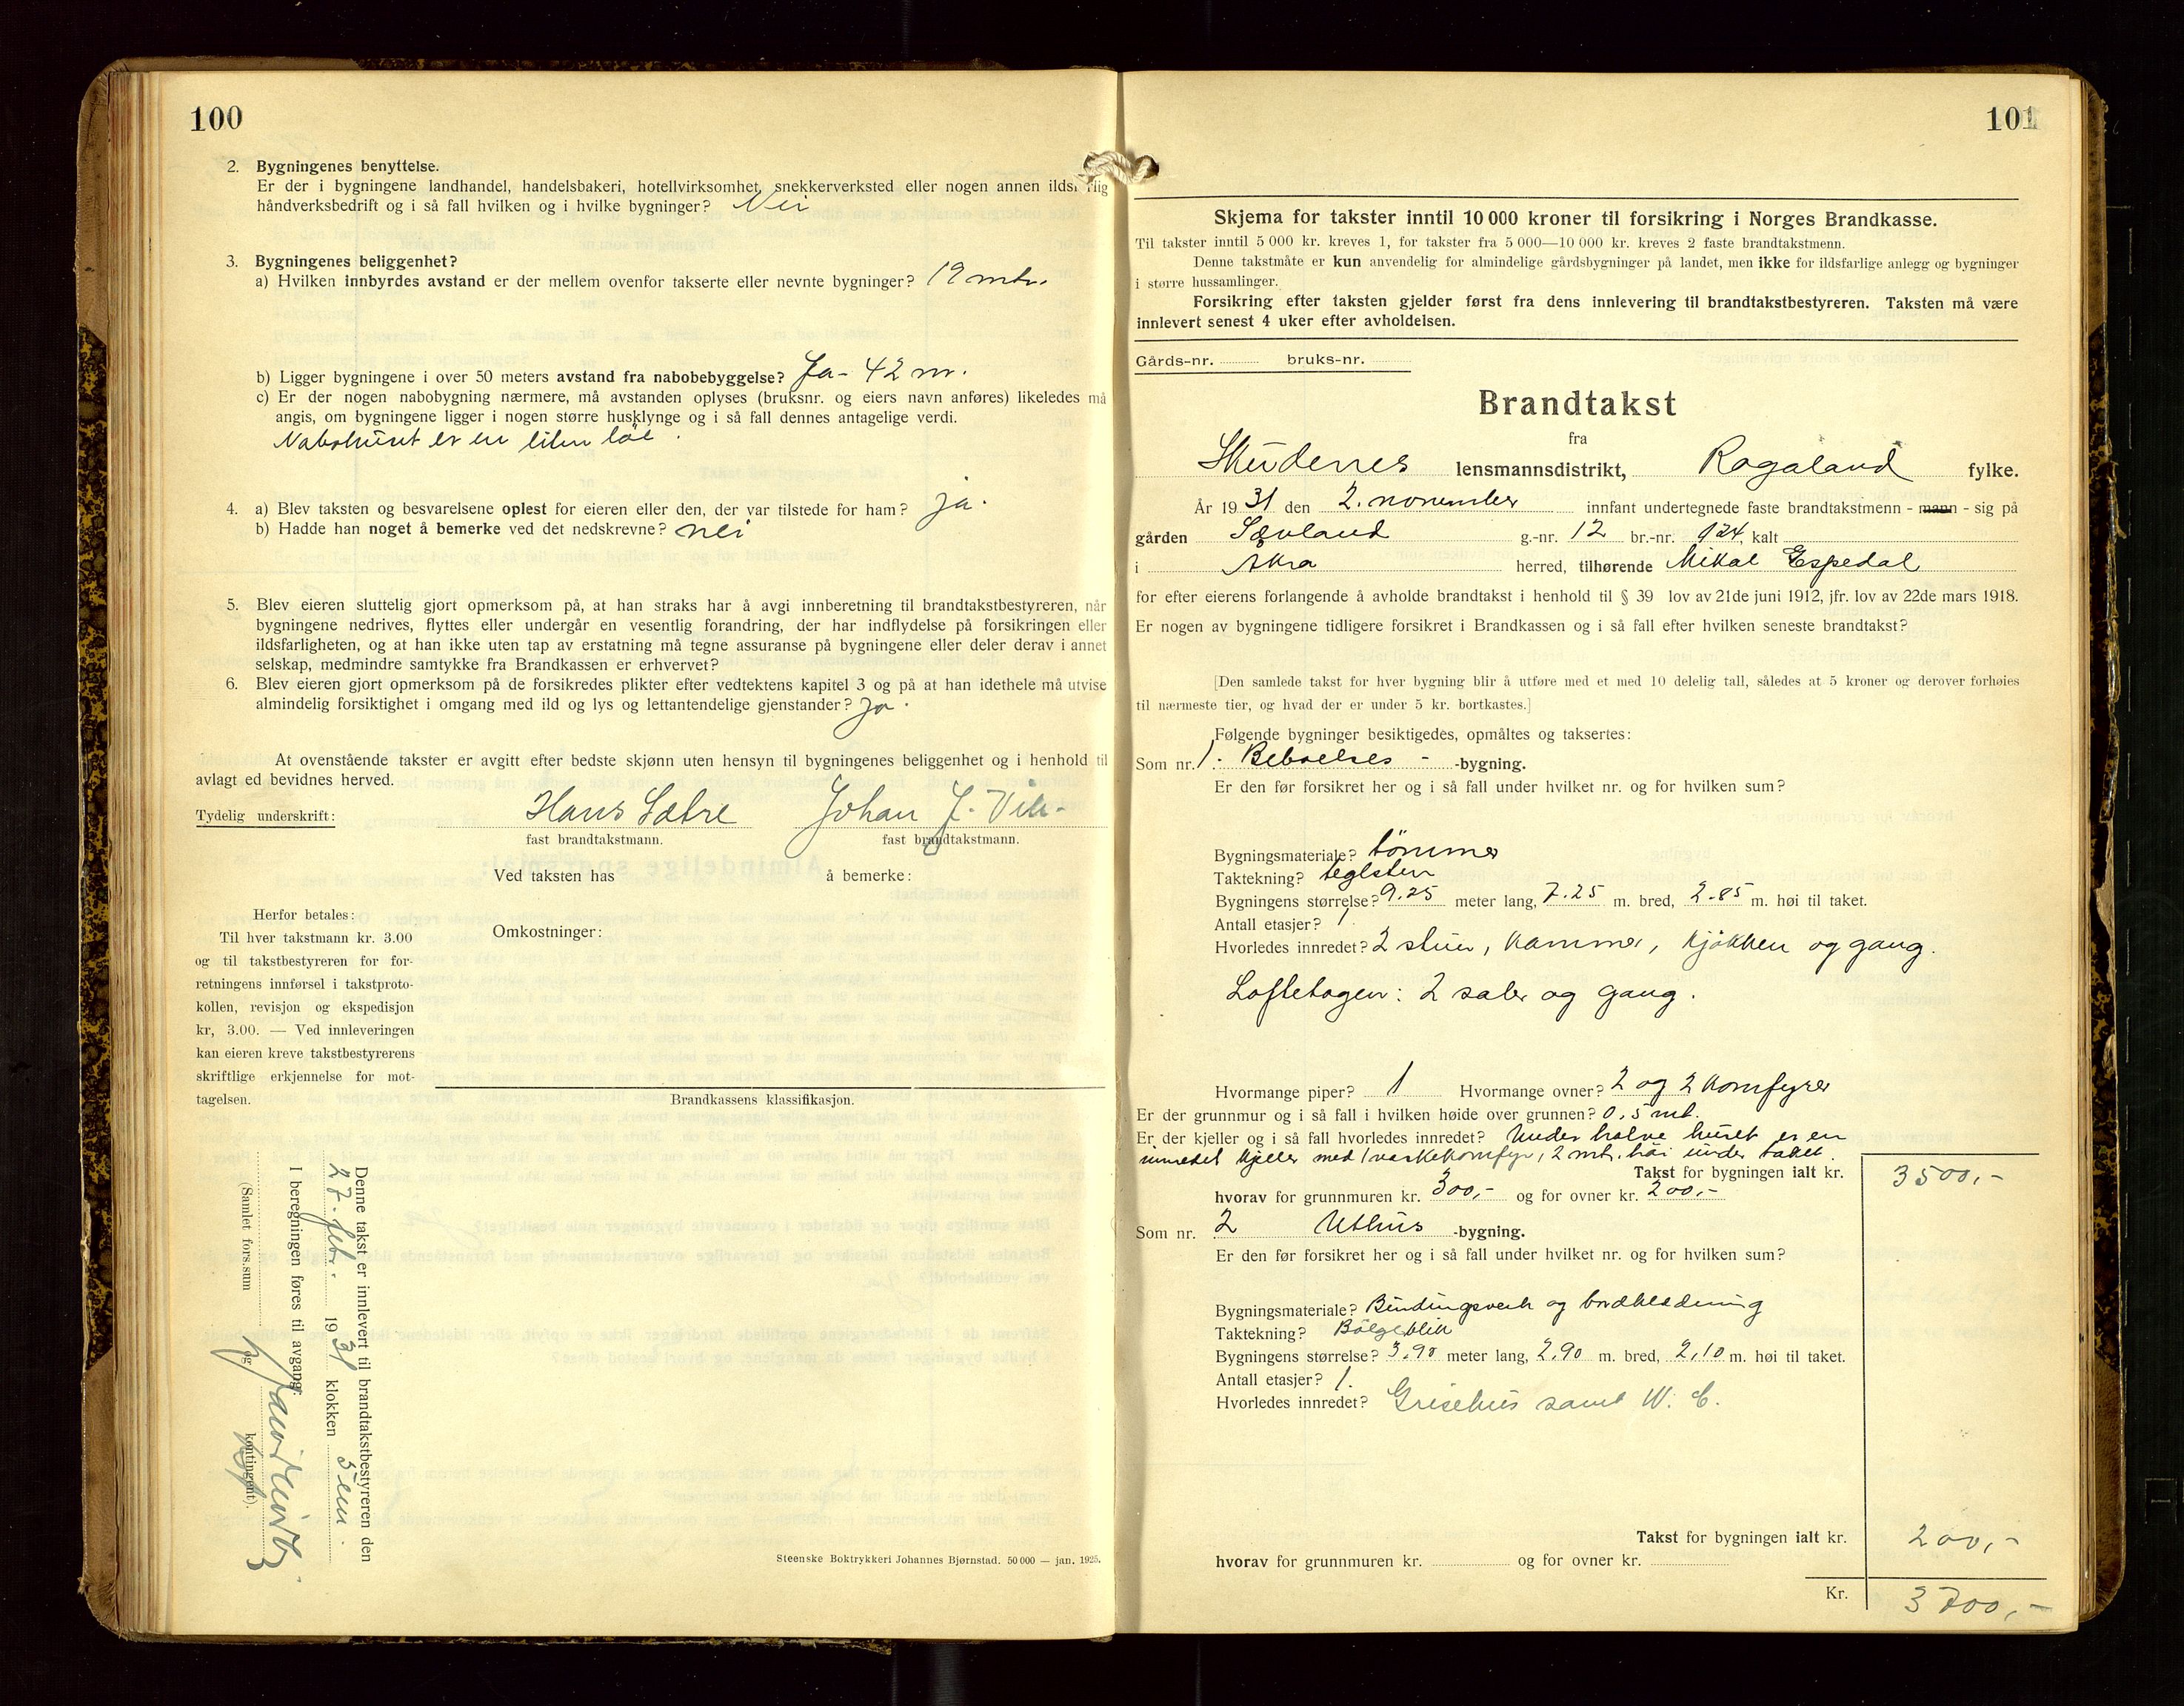 100
2. Bygningenes benyttelse.
Er der i bygningene landhandel, handelsbakeri, hotellvirksomhet, snekkerverksted eller nogen annen ildsf lig
håndverksbedrift og i så fall hvilken og i hvilke bygninger? Nei
3. Bygningenes beliggenhet?
a) Hvilken innbyrdes avstand er der mellem ovenfor takserte eller nevnte bygninger? 19 mtr.
b) Ligger bygningene i over 50 meters avstand fra nabobebyggelse? Ja - 42 m.
c) Er der nogen nabobygning nærmere, må avstanden oplyses (bruksnr. og eiers navn anføres) likeledes må
angis, om bygningene ligger i nogen større husklynge og i så fall dennes antagelige verdi.
Nabohuset er en liten løe.
4. a) Blev taksten og besvarelsene oplest for eieren eller den, der var tilstede for ham? ja.
b) Hadde han noget å bemerke ved det nedskrevne? nei
5. Blev eieren sluttelig gjort opmerksom på, at han straks har å avgi innberetning til brandtakstbestyreren, når
bygningene nedrives, flyttes eller undergår en vesentlig forandring, der har indflydelse på forsikringen eller
ildsfarligheten, og at han ikke uten tap av erstatning må tegne assuranse på bygningene eller deler derav i annet
selskap, medmindre samtykke fra Brandkassen er erhvervet?
6. Blev eieren gjort opmerksom på de forsikredes plikter efter vedtektens kapitel 3 og på at han idethele må utvise
almindelig forsiktighet i omgang med ild og lys og lettantendelige gjenstander? ja.
At ovenstående takster er avgitt efter bedste skjønn uten hensyn til bygningenes beliggenhet og i henhold til
avlagt ed bevidnes herved.
Tydelig underskrift: Hans Sætre Johan J. Vik
fast brandtakstmann. fast brandtakstmann.
Ved taksten has å bemerke:
Herfor betales:
Til hver takstmann kr. 3.00
og til takstbestyreren for for-
retningens innførsel i takstproto-
kollen, revisjon og ekspedisjon
kr, 3.00. — Ved innleveringen
kan eieren kreve takstbestyrerens
skriftlige erkjennelse for mot-
tagelsen.
Omkostninger:
Brandkassens klassifikasjon.
Denne takst er innlevert til brandtakstbestyreren den
27. febr. 1931 klokken 5 em.
I beregningen føres til avgang:
(Samlet fors.sum og kontingent).
Steenske Boktrykkeri Johannes Bjørnstad. 50 000 — jan. 1925.
101
Skjema for takster inntil 10 000 kroner til forsikring i Norges Brandkasse.
Til takster inntil 5 000 kr. kreves 1, for takster fra 5 000—10 000 kr. kreves 2 faste brandtakstmenn.
Denne takstmåte er kun anvendelig for almindelige gårdsbygninger på landet, men ikke for ildsfarlige anlegg og bygninger
i større hussamlinger.
Forsikring efter taksten gjelder først fra dens innlevering til brandtakstbestyreren. Taksten må være
innlevert senest 4 uker efter avholdelsen.
Gårds-nr. bruks-nr.
Brandtakst
fra
Skudenes lensmannsdistrikt, Rogaland fylke.
År 1931 den 2. november innfant undertegnede faste brandtakstmenn - mann - sig på
gården Sævland g.-nr. 12 br.-nr. 124, kalt
i Åkra herred, tilhørende Mikal Espedal
for efter eierens forlangende å avholde brandtakst i henhold til § 39 lov av 21de juni 1912, jfr. lov av 22de mars 1918.
Er nogen av bygningene tidligere forsikret i Brandkassen og i så fall efter hvilken seneste brandtakst?
[Den samlede takst for hver bygning blir å utføre med et med 10 delelig tall, således at 5 kroner og derover forhøies
til nærmeste tier, og hvad der er under 5 kr. bortkastes.]
Følgende bygninger besiktigedes, opmåltes og taksertes:
Som nr. 1. Beboelses - -bygning.
Er den før forsikret her og i så fall under hvilket nr. og for hvilken sum?
Bygningsmateriale? tömmer
Taktekning? teglsten
Bygningens størrelse? 9.25 meter lang, 7.25 m. bred, 2.85 m. høi til taket.
Antall etasjer? 1
Hvorledes innredet? 2 stuer, kammer, kjökken og gang.
Loftetagen: 2 saler og gang.
Hvormange piper? 1 Hvormange ovner? 2 og 2 komfyrer
Er der grunnmur og i så fall i hvilken høide over grunnen? 0.5 mt.
Er der kjeller og i så fall hvorledes innredet? Under halve huset er en
innredet kjeller med 1 vaskekomfyr, 2 mt. höi under taket.
Takst for bygningen ialt kr. 3500,-
hvorav for grunnmuren kr. 300,- og for ovner kr. 200,-
Som nr. 2 Uthus -bygning.
Er den før forsikret her og i så fall under hvilket nr. og for hvilken sum?
Bygningsmateriale? Bindingsverk og bordklædning
Taktekning? Bölgeblik
Bygningens størrelse? 3.90 meter lang, 2.90 m. bred, 2.10 m. høi til taket.
Antall etasjer? 1.
Hvorledes innredet? Grisehus samt W. C.
Takst for bygningen ialt kr. 200,-
hvorav for grunnmuren kr. og for ovner kr.
Kr. 3700,-